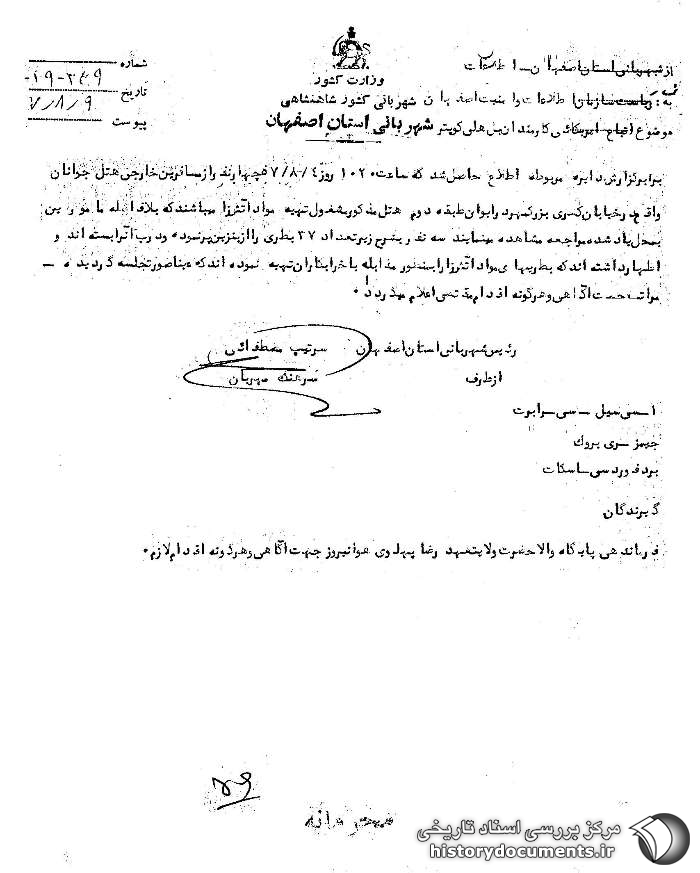 وزارت کشور
شهربانی کشور شاهنشاهی
شهربانی استان اصفهان
شماره
۱۹-۲۴۹-
تاریخ
۷/۸/۹
پیوست
از شهربانی استان اصفهان - اطلاعات
به: ریاست سازمان اطلاعات و امنیت اصفهان
موضوع اتباع امریکائی کارمندان بل هلی کوپتر
برابر گزارش دایره مربوطه اطلاع حاصل شد که ساعت ۱۰۲۰ روز ۷/۸/٤ چهار نفر از مسافرین خارجی هتل جوانان
واقع در خیابان کسری بزرگمهر در ایوان طبقه دوم هتل مذکور مشغول تهیه مواد آتشزا میباشند که بلافاصله مامورین
بمحل یاد شده مراجعه مشاهده مینمایند سه نفر بشرح زیر تعداد ۲۷ بطری را از بنزین پر نموده و درب آنرا بسته اند و
اظهار داشته اند که بطریهای مواد آتشزا را بمنظور مقابله با خرابکاران تهیه نموده اند که عینا صورتجلسه گردیده
مراتب جهت آگاهی و هرگونه اقدام مقتضی اعلام میگردد
رئیس شهربانی استان اصفهان سرتیپ مصطفائی
از طرف سرهنگ مهربان
ا - سی میل - سی - رابوت
جیمز - سری بروک
برد فورد سی - اسکات
گیرندگان
فرماندهی پایگاه والاحضرت ولایتعهد رضا پهلوی هوانیروز جهت آگاهی و هرگونه اقدام لازم.
محرمانه
مرکز بررسی اسناد تاریخی
historydocuments.ir